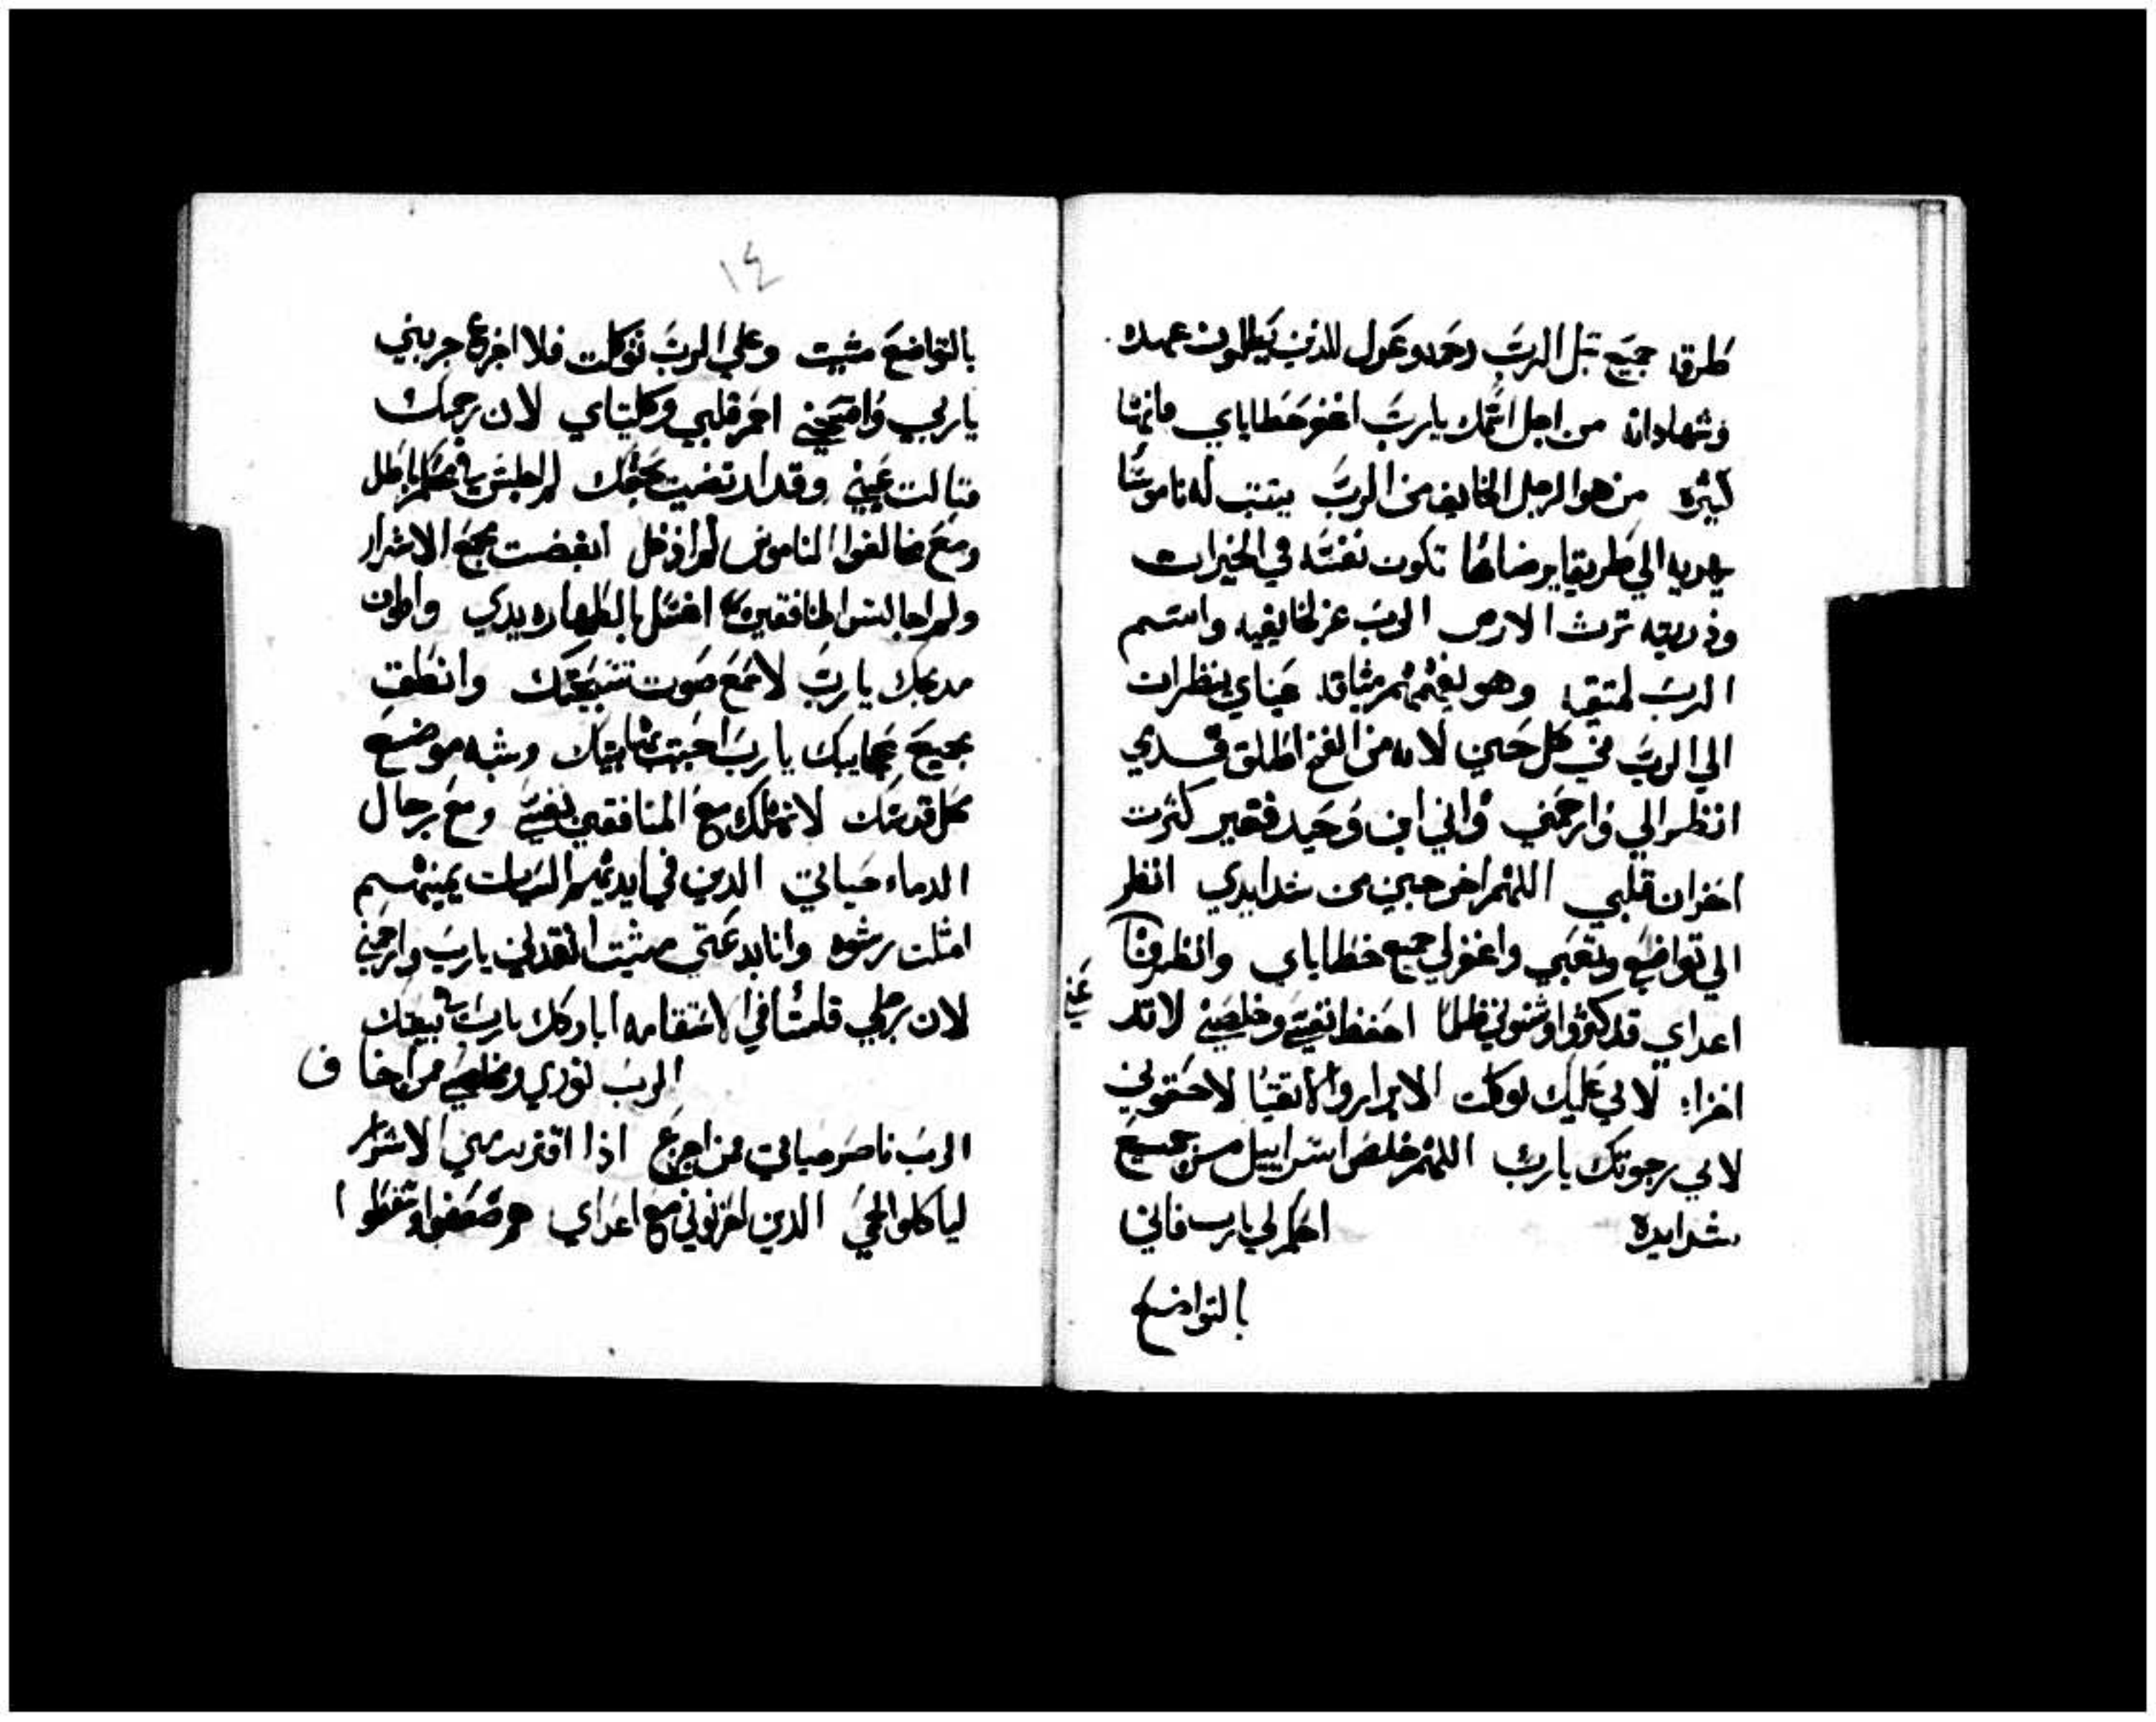 طرقه جميع سبل الرب رحمه وعدل للذين يطلبون عهده
وشهاداته من اجل اسمك يارب اغفر خطاياي فانها
كثيره من هو الرجل الخايف من الرب يتبت له ناموسًا
يهديه الي طريقا يرضاها تكون نفسه في الخيرات
وذريته ترث الارض الرب عز لخايفيه واسم
الرب لمتقيه وهو يعلمهم ميثاقه عيناي ينظران
الي الرب في كل حين لانه من الفخ اطلق قدمي
انظر الي وارحمني فاني ابن وحيد فقير كثرت
احزان قلبي اللهم اخرجني من شدايدي انظر
الي تواضعي وتعبي واغفر لي جميع خطاياي وانظر فان
اعداي قد كثروا وشنوني ظلما احفظ نفسي وخلصني لا تد
عني
اخزا لاني عليك توكلت الابرار والاتقيا لاحقوني
لاني رجوتك يارب اللهم خلص اسراييل من جميع
شدايده احكم لي يارب فاني
بالتواضع
١٤
بالتواضع مشيت وعلي الرب توكلت فلا اجزع جربني
ياربي وامتحني احمر قلبي وكليتاي لان رحمتك
قبالت عيني وقد ارتضيت بحقك لم اجلس في محفل باطل
ومع مخالفوا الناموس لم ادخل ابغضت مجمع الاشرار
ولم اجالس المنافقين اغسل بالطهاره يدي واطوف
مدبحك يارب لاسمع صوت تسبحتك وانطق
بجميع عجايبك يارب احببت بها بيتك وشبه موضع
محل قدسك لا تهلك مع المنافقين نفسي ومع رجال
الدماء حياتي الدين في ايديهم السيات يمينهم
امتلت رشوه وانا بدعتي مشيت انقدني يارب وارحمني
لان رجلي قامت في الاستقامه اباركك يارب في بيعتك
الرب نوري ومخلصي ممن اخاف
الرب ناصر حياتي ممن اجزع اذا اقترب مني الاشرار
لياكلوا لحمي الدين احزنوني مع اعداي هم ضعفوا وسقطوا